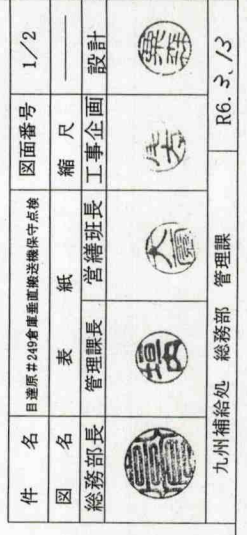 件 名 目達原#249倉庫垂直搬送機保守点検 図面番号 1/2
図 名 表 紙 縮 尺 ——
総務部長 管理課長 営繕班長 工事企画 設計
堀内
九州補給処 総務部 管理課 R6.3.13